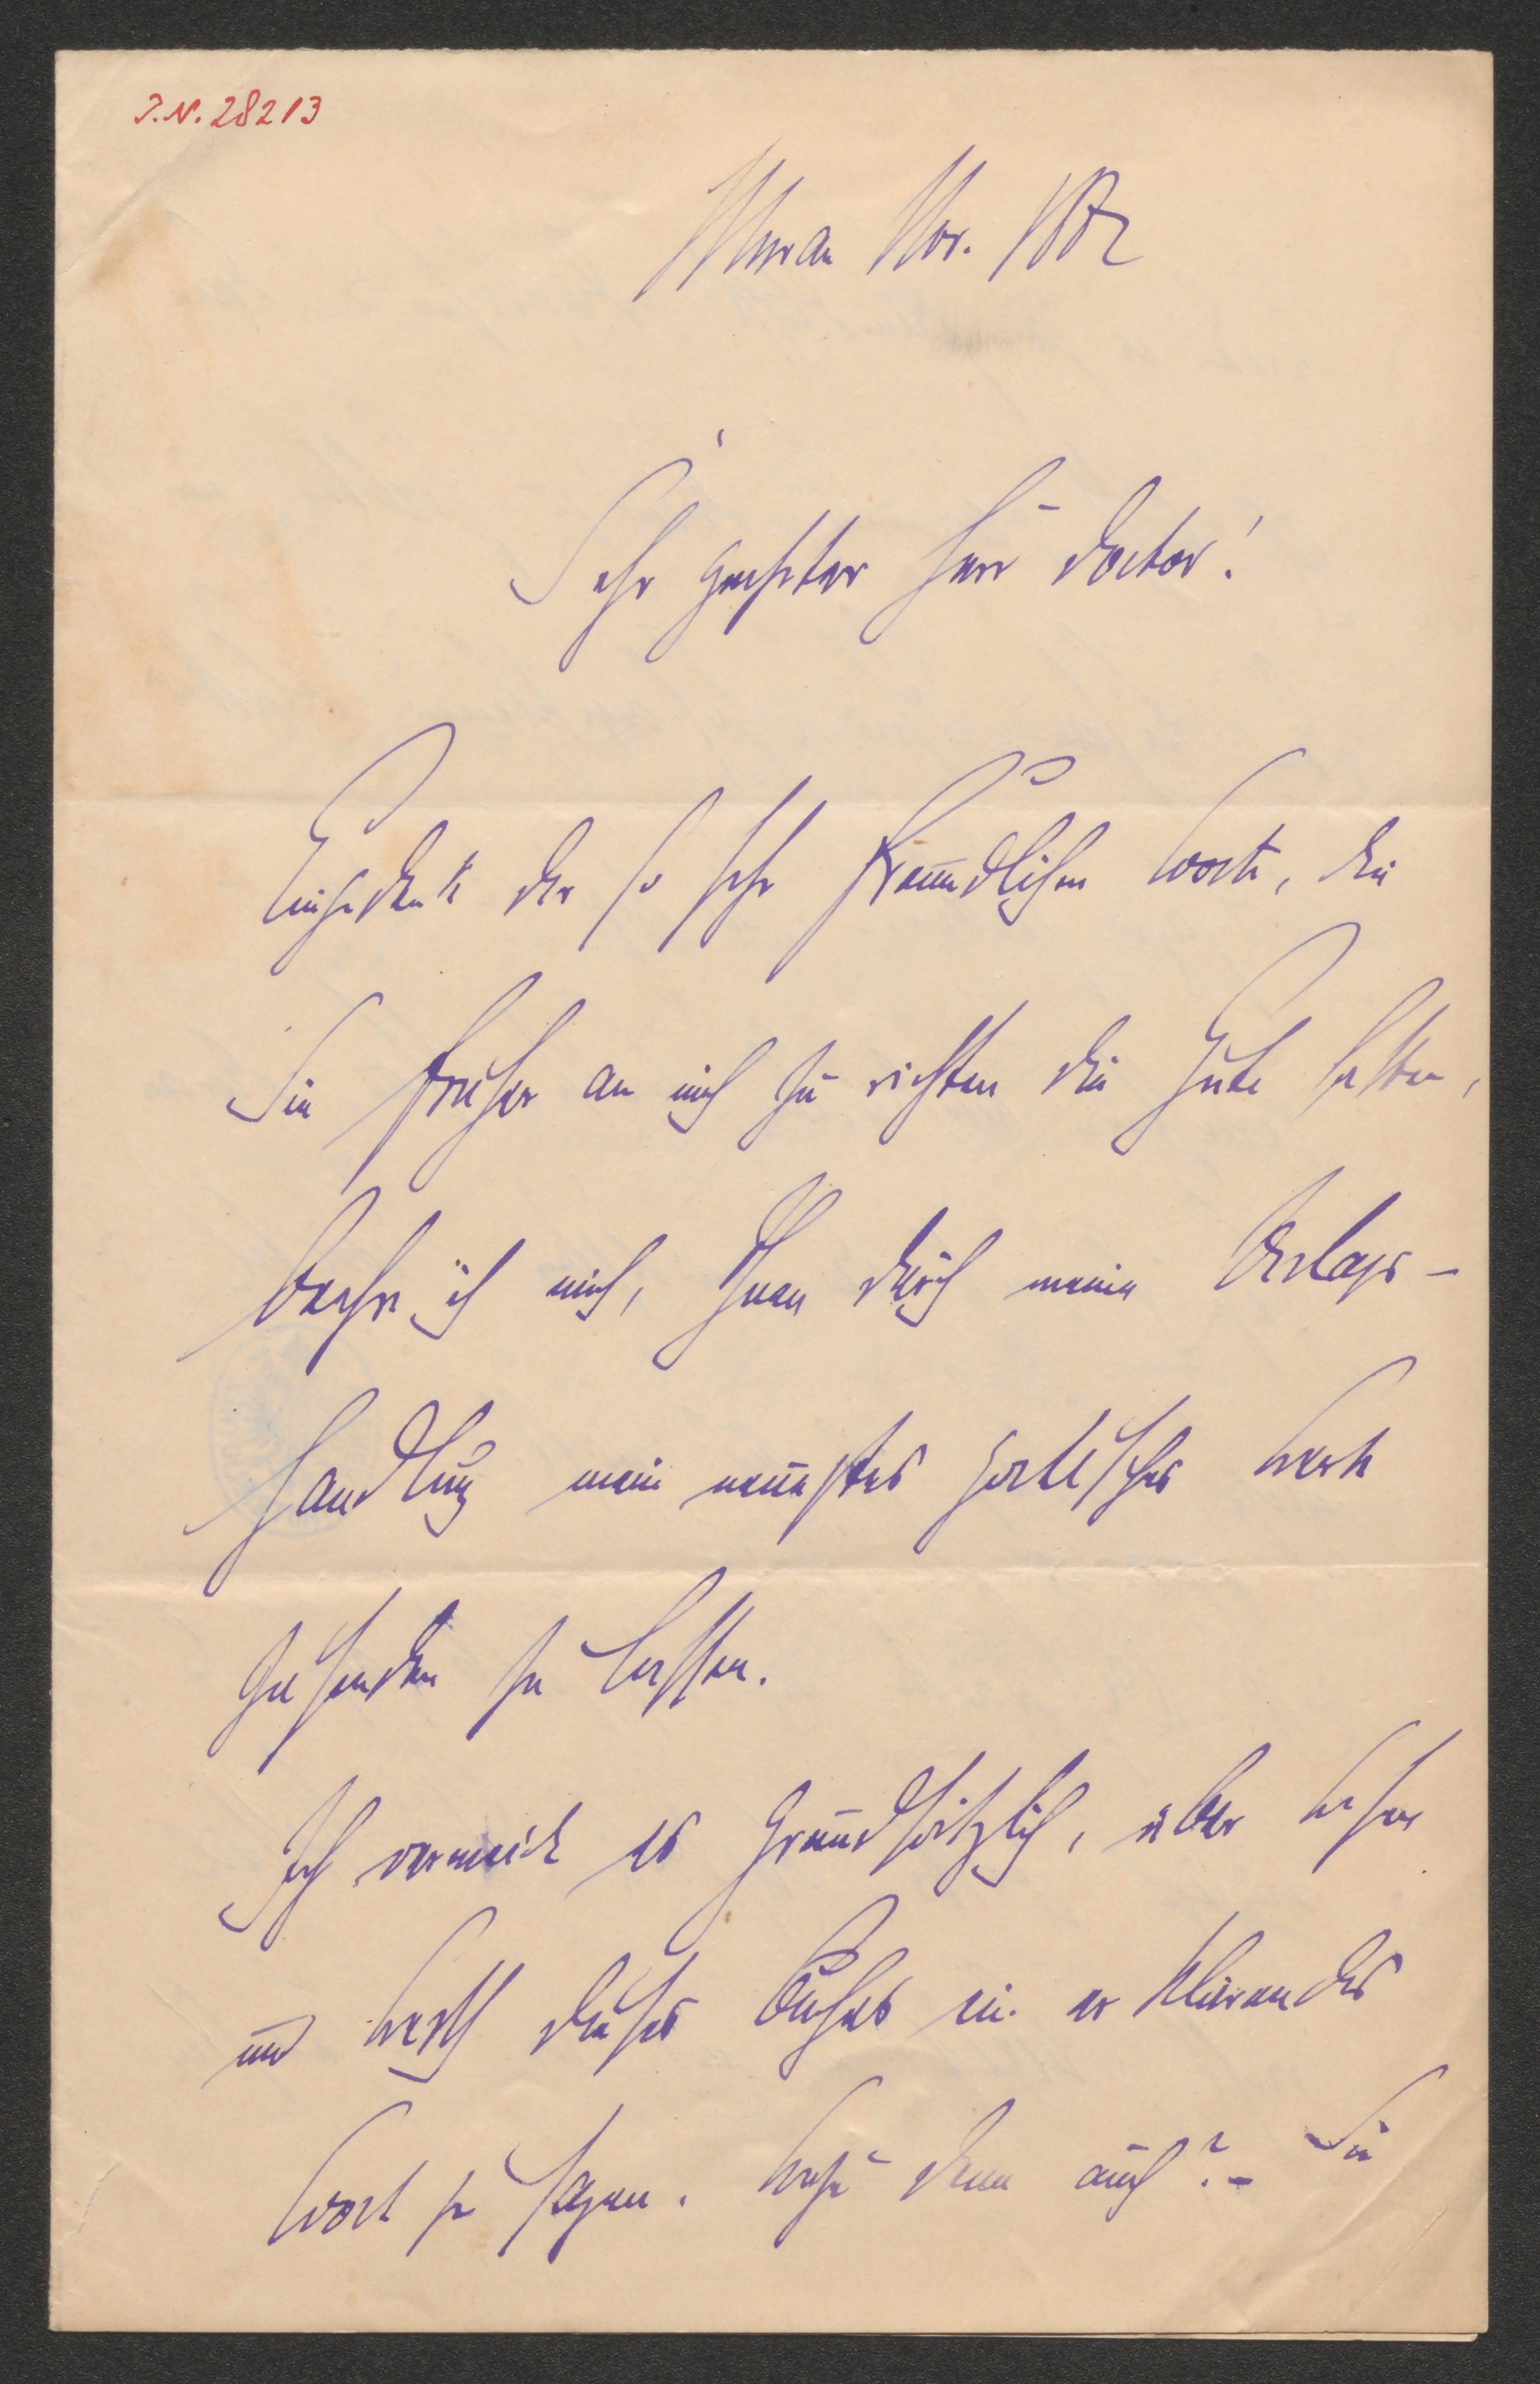 I.N. 28213
Meran Nov. 1882
Sehr geehrter Herr Doctor!
Eingedenk der so sehr freundlichen Worte, die
Sie früher an mich zu richten die Güte hatten,
beehre ich mich, Ihnen durch meine Verlags-
handlung mein neuestes poetisches Werk
zusenden zu lassen.
Ich vermeide es grundsätzlich, über Wesen
und Werth dieses Buches ein erklärendes
Wort zu sagen. Wozu denn auch? – Sie